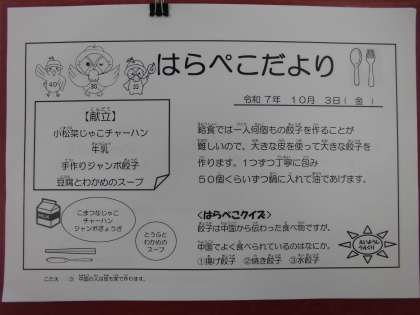 はらぺこだより
令和7年 10月 3日(金)
【献立】
小松菜じゃこチャーハン
牛乳
手作りジャンボ餃子
豆腐とわかめのスープ
給食では一人何個もの餃子を作ることが
難しいので、大きな皮を使って大きな餃子を
作ります。1つずつ丁寧に包み
50個くらいずつ鍋に入れて油であげます。
こまつなじゃこ
チャーハン
ジャンボぎょうざ
とうふと
わかめの
スープ
<はらぺこクイズ>
餃子は中国から伝わった食べ物ですが、
中国でよく食べられているのはなにか。
①揚げ餃子 ②焼き餃子 ③水餃子
こたえ ③